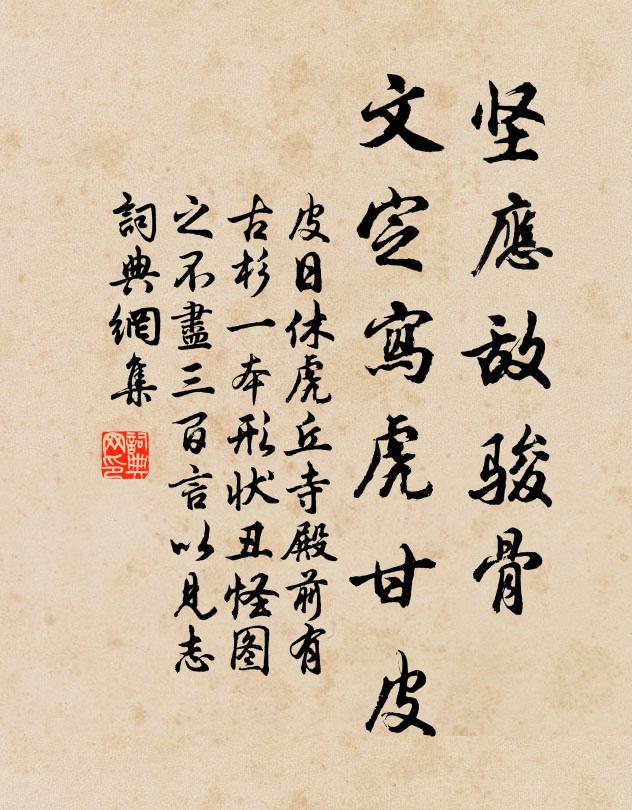 坚應敌骏骨
文定寫虎甘皮
皮日休虎丘寺殿前有
古杉一本形状丑怪图
之不盡三百言以見志
詞典網集
詞典網印